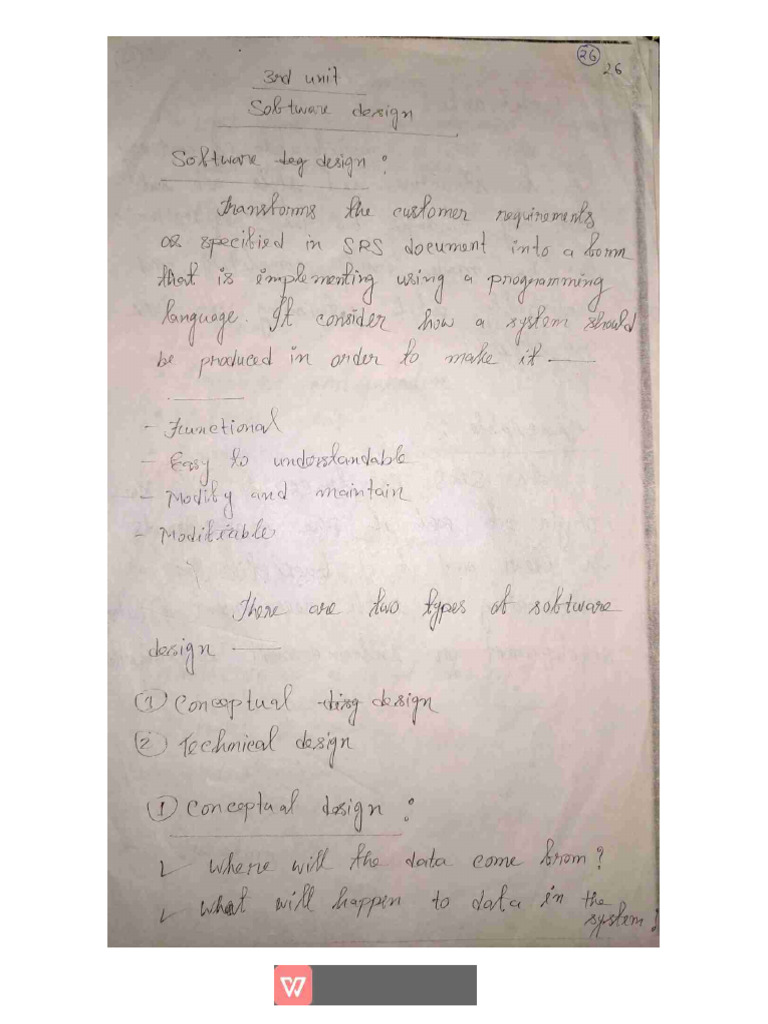 26
26
3rd unit
Software design
Software deg design :
Transforms the customer requirements
as specified in SRS document into a form
that is implementing using a programming
language. It consider how a system should
be produced in order to make it —
- Functional
- Easy to understandable
- Modify and maintain
- Modificable
There are two types of software
design —
① Conceptual desg design
② Technical design
① Conceptual design :
✓ Where will the data come from?
✓ What will happen to data in the
system?
W